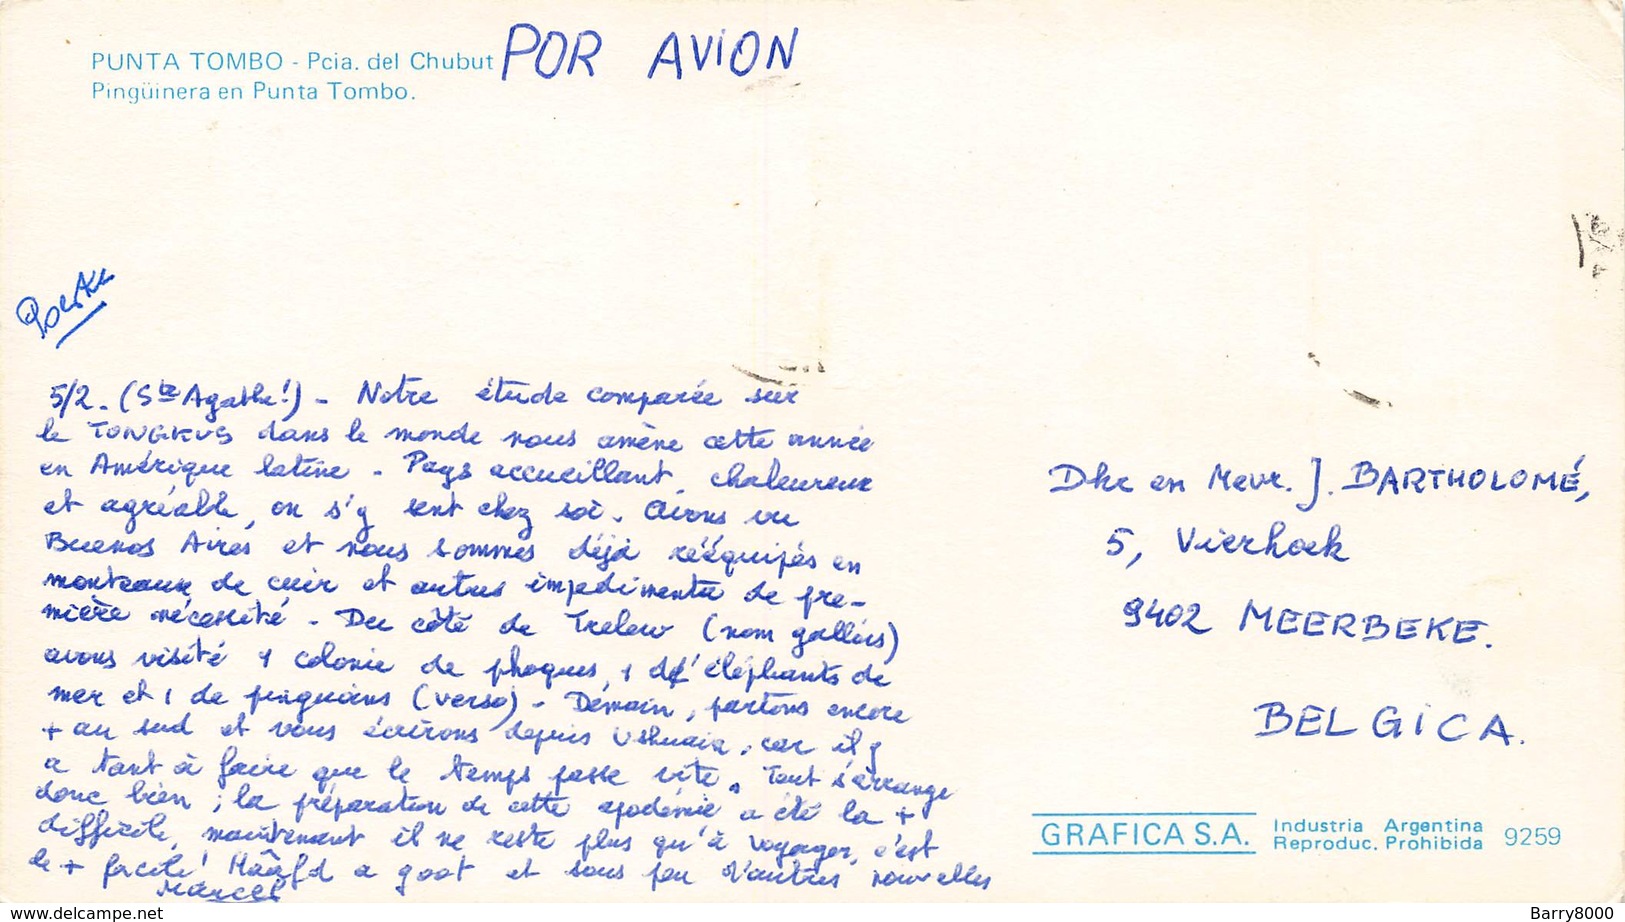 PUNTA TOMBO - Pcia. del Chubut
Pingüinera en Punta Tombo.
POR AVION
5/2. (Ste Agathe!) - Notre étude comparée sur
le TONGKUS dans le monde nous amène cette année
en Amérique latine - Pays accueillant, chaleureux
et agréable, on s'y sent chez soi. Avons vu
Buenos Aires et nous sommes déjà rééquipés en
manteaux de cuir et autres impedimenta de pre-
mière nécessité - Du côté de Trelew (nom gallois)
avons visité 1 colonie de phoques, 1 d'éléphants de
mer et 1 de pingouins (verso) - Demain, partons encore
+ au sud et vous écrirons depuis Ushuaia, car il y
a tant à faire que le temps passe vite. Tout s'arrange
donc bien ; la préparation de cette apodémie a été la +
difficile, maintenant il ne reste plus qu'à voyager, c'est
le + facile! goot et sous peu d'autres nouvelles
Marcel
Dhr en Mevr. J. BARTHOLOMÉ,
5, Vierhoek
9402 MEERBEKE.
BELGICA.
GRAFICA S.A. Industria Argentina
Reproduc. Prohibida 9259
www.delcampe.net
Barry8000